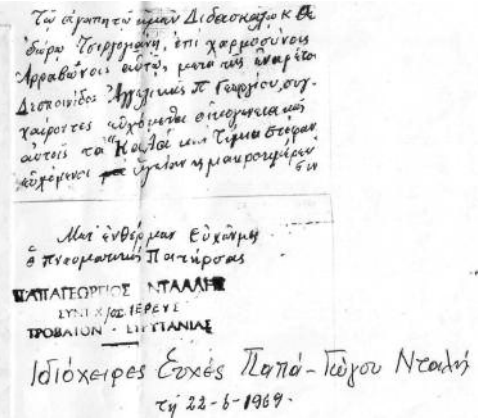 Τῷ ἀγαπητῷ ἡμῶν Διδασκάλῳ κ. Θε
δώρῳ Τσιργογιάνη, ἐπί χαρμοσύνοις
Ἀρραβῶνοις αὐτῷ, μετά τῆς ἐναρέτου
Δεσποινίδος Ἀγγελικῆς Π Γεωργίου, συγ-
χαίροντες εὐχόμεθα οἰκογενειακῶς
αὐτοῖς τά "Καλά καί Τίμια στέφαν
εὐχόμενοι ὑγείαν κ μακροημέρευ
σιν
Μετ' ἐνθέρμων Εὐχῶν μς
ὁ πνευματικός Πατήρ σας
ΠΑΠΑΓΕΩΡΓΙΟΣ ΝΤΑΛΛΗΣ
ΣΥΝΤ/ΧΟΣ ΙΕΡΕΥΣ
ΠΡΟΒΑΤΟΝ - ΕΥΡΥΤΑΝΙΑΣ
Ιδιόχειρες Ευχές Παπά-Γιώργου Νταλλή
τῇ 22-6-1969.